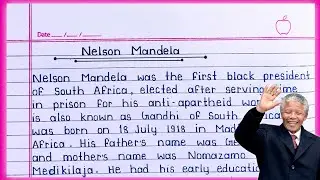 Date __/__/__
Nelson Mandela
Nelson Mandela was the first black president
of South Africa, elected after serving time
in prison for his anti-apartheid
is also known as Gandhi of South
was born on 18 July 1918 in
Africa. His father's name was
and mother's name was Nomazamo
Medikilaja. He had his early education